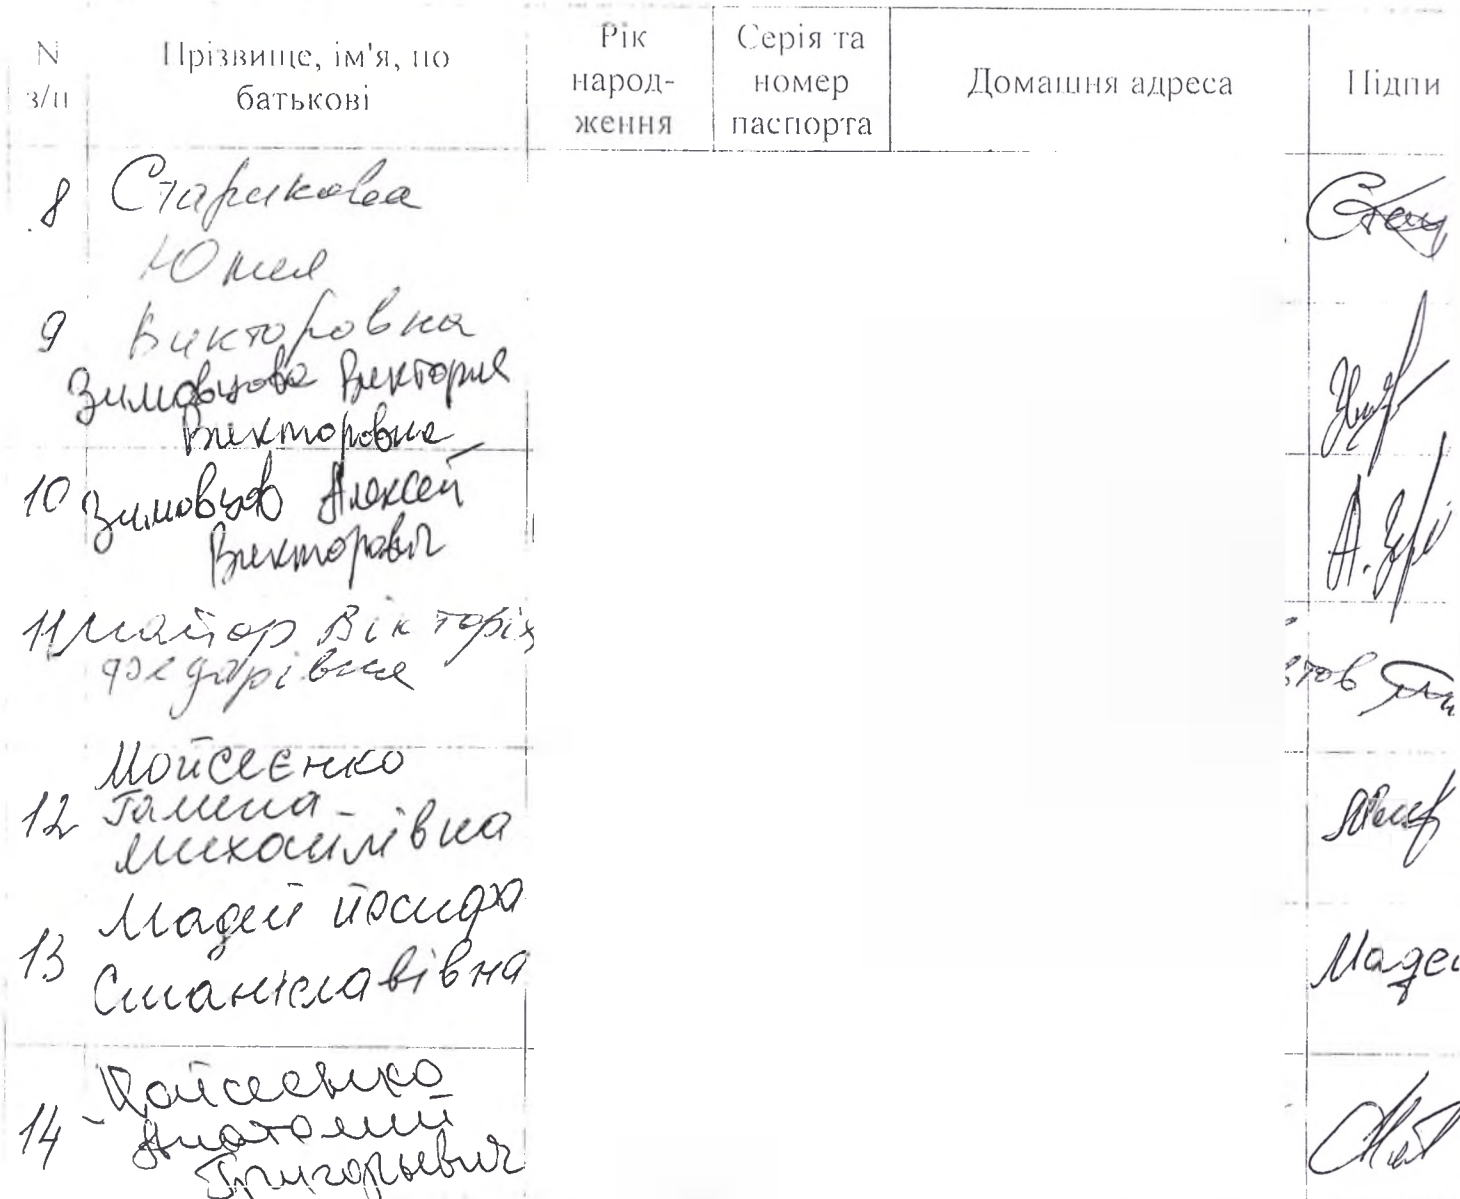 N з/п
Прізвище, ім'я, по батькові
Рік народ-ження
Серія та номер паспорта
Домашня адреса
Підпи
8 Старикова
Юлия
9 Викторовна
Зимовцова Виктория
Викторовна
10 Зимовцов Алексей
Викторович
11 Майор Вікторія
Федорівна
тов
12 Мойсеєнко
Галина
Михайлівна
13 Мадей Йосифа
Станіславівна
Мадей
14 Мойсеенко
Анатолий
Григорьевич